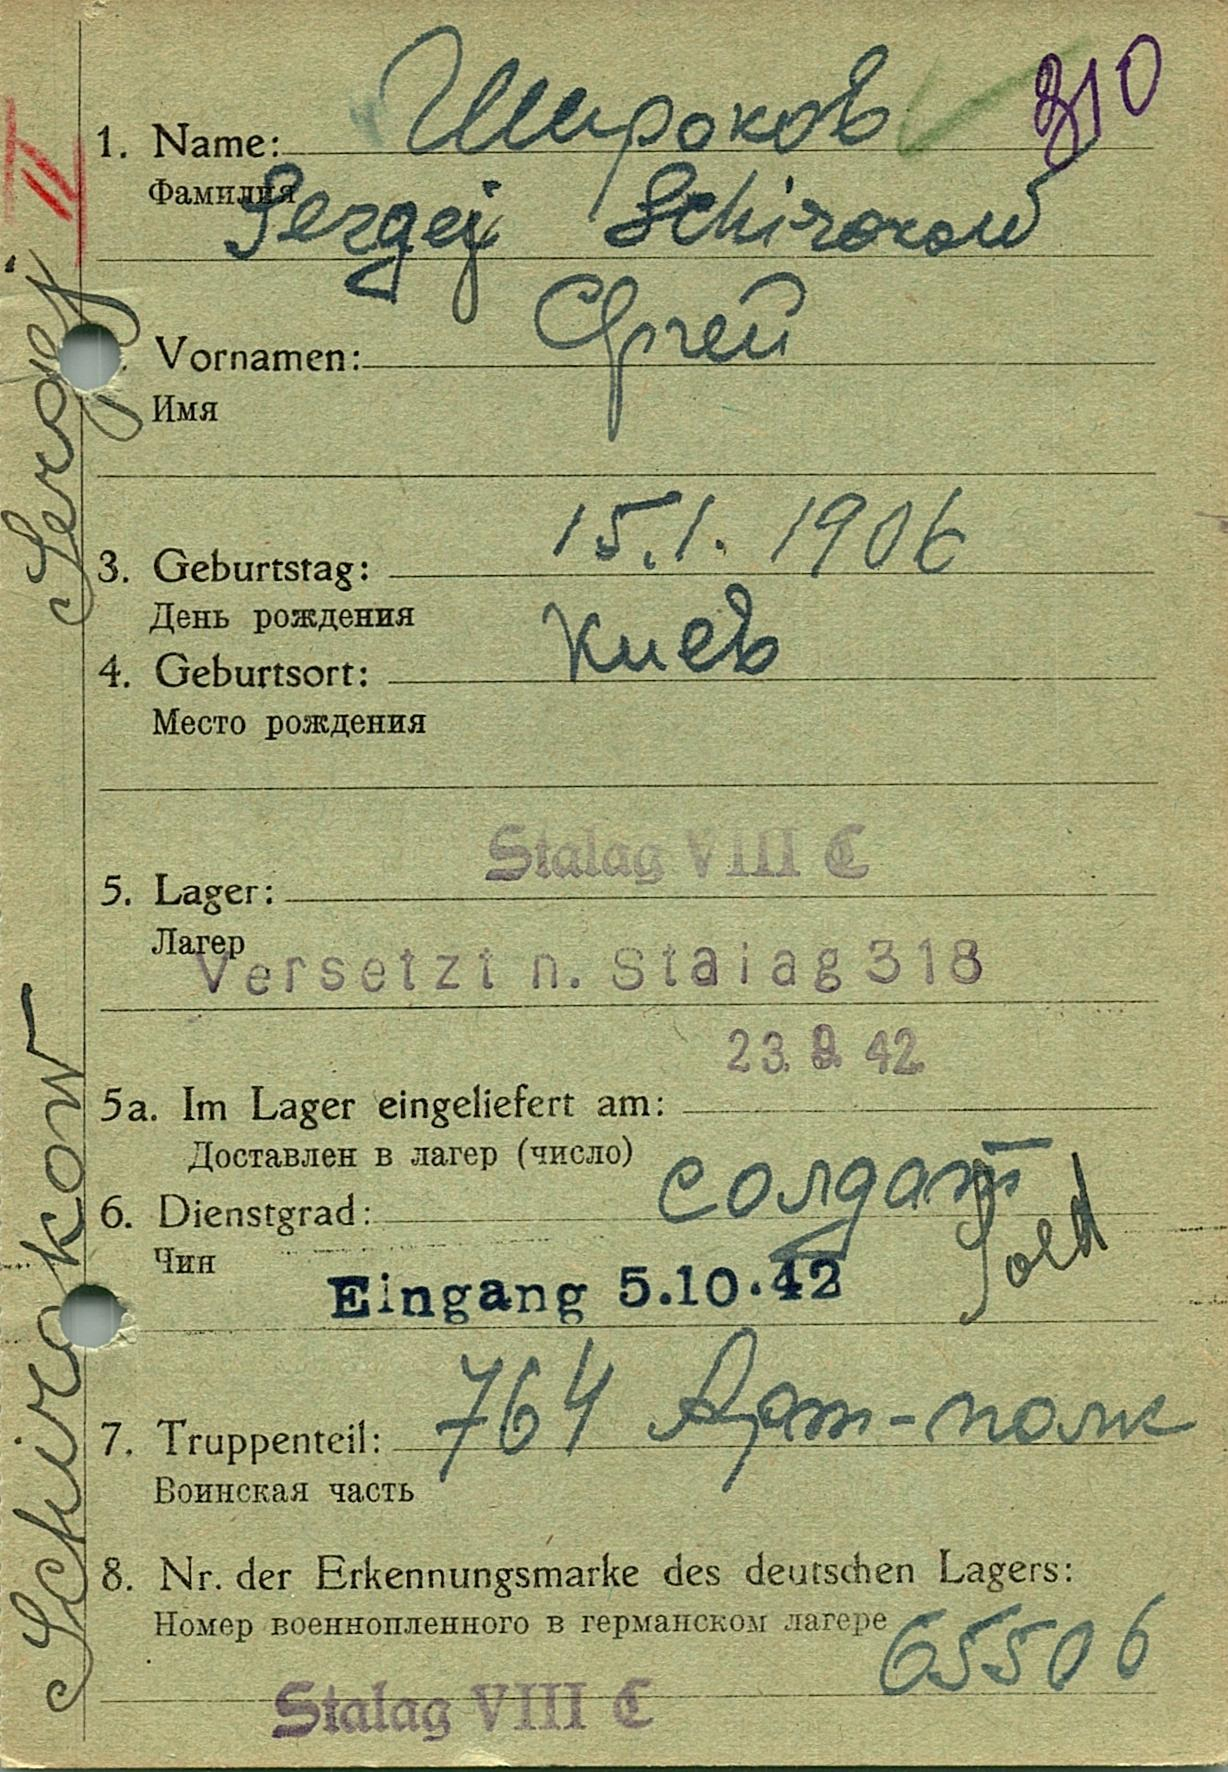 Широков 310
1. Name:
Фамилия
Sergej Schirokow
Сергей
Vornamen:
Имя
15.1.1906
3. Geburtstag:
День рождения
Киев
4. Geburtsort:
Место рождения
Stalag VIII C
5. Lager:
Лагер
Versetzt n. Stalag 318
23. 9. 42
5a. Im Lager eingeliefert am:
Доставлен в лагер (число)
солдат
6. Dienstgrad:
Sold
Чин
Eingang 5.10.42
764 Арт-полк
7. Truppenteil:
Воинская часть
8. Nr. der Erkennungsmarke des deutschen Lagers:
Номер военнопленного в германском лагере
65506
Stalag VIII C
Schirokow Sergej
II